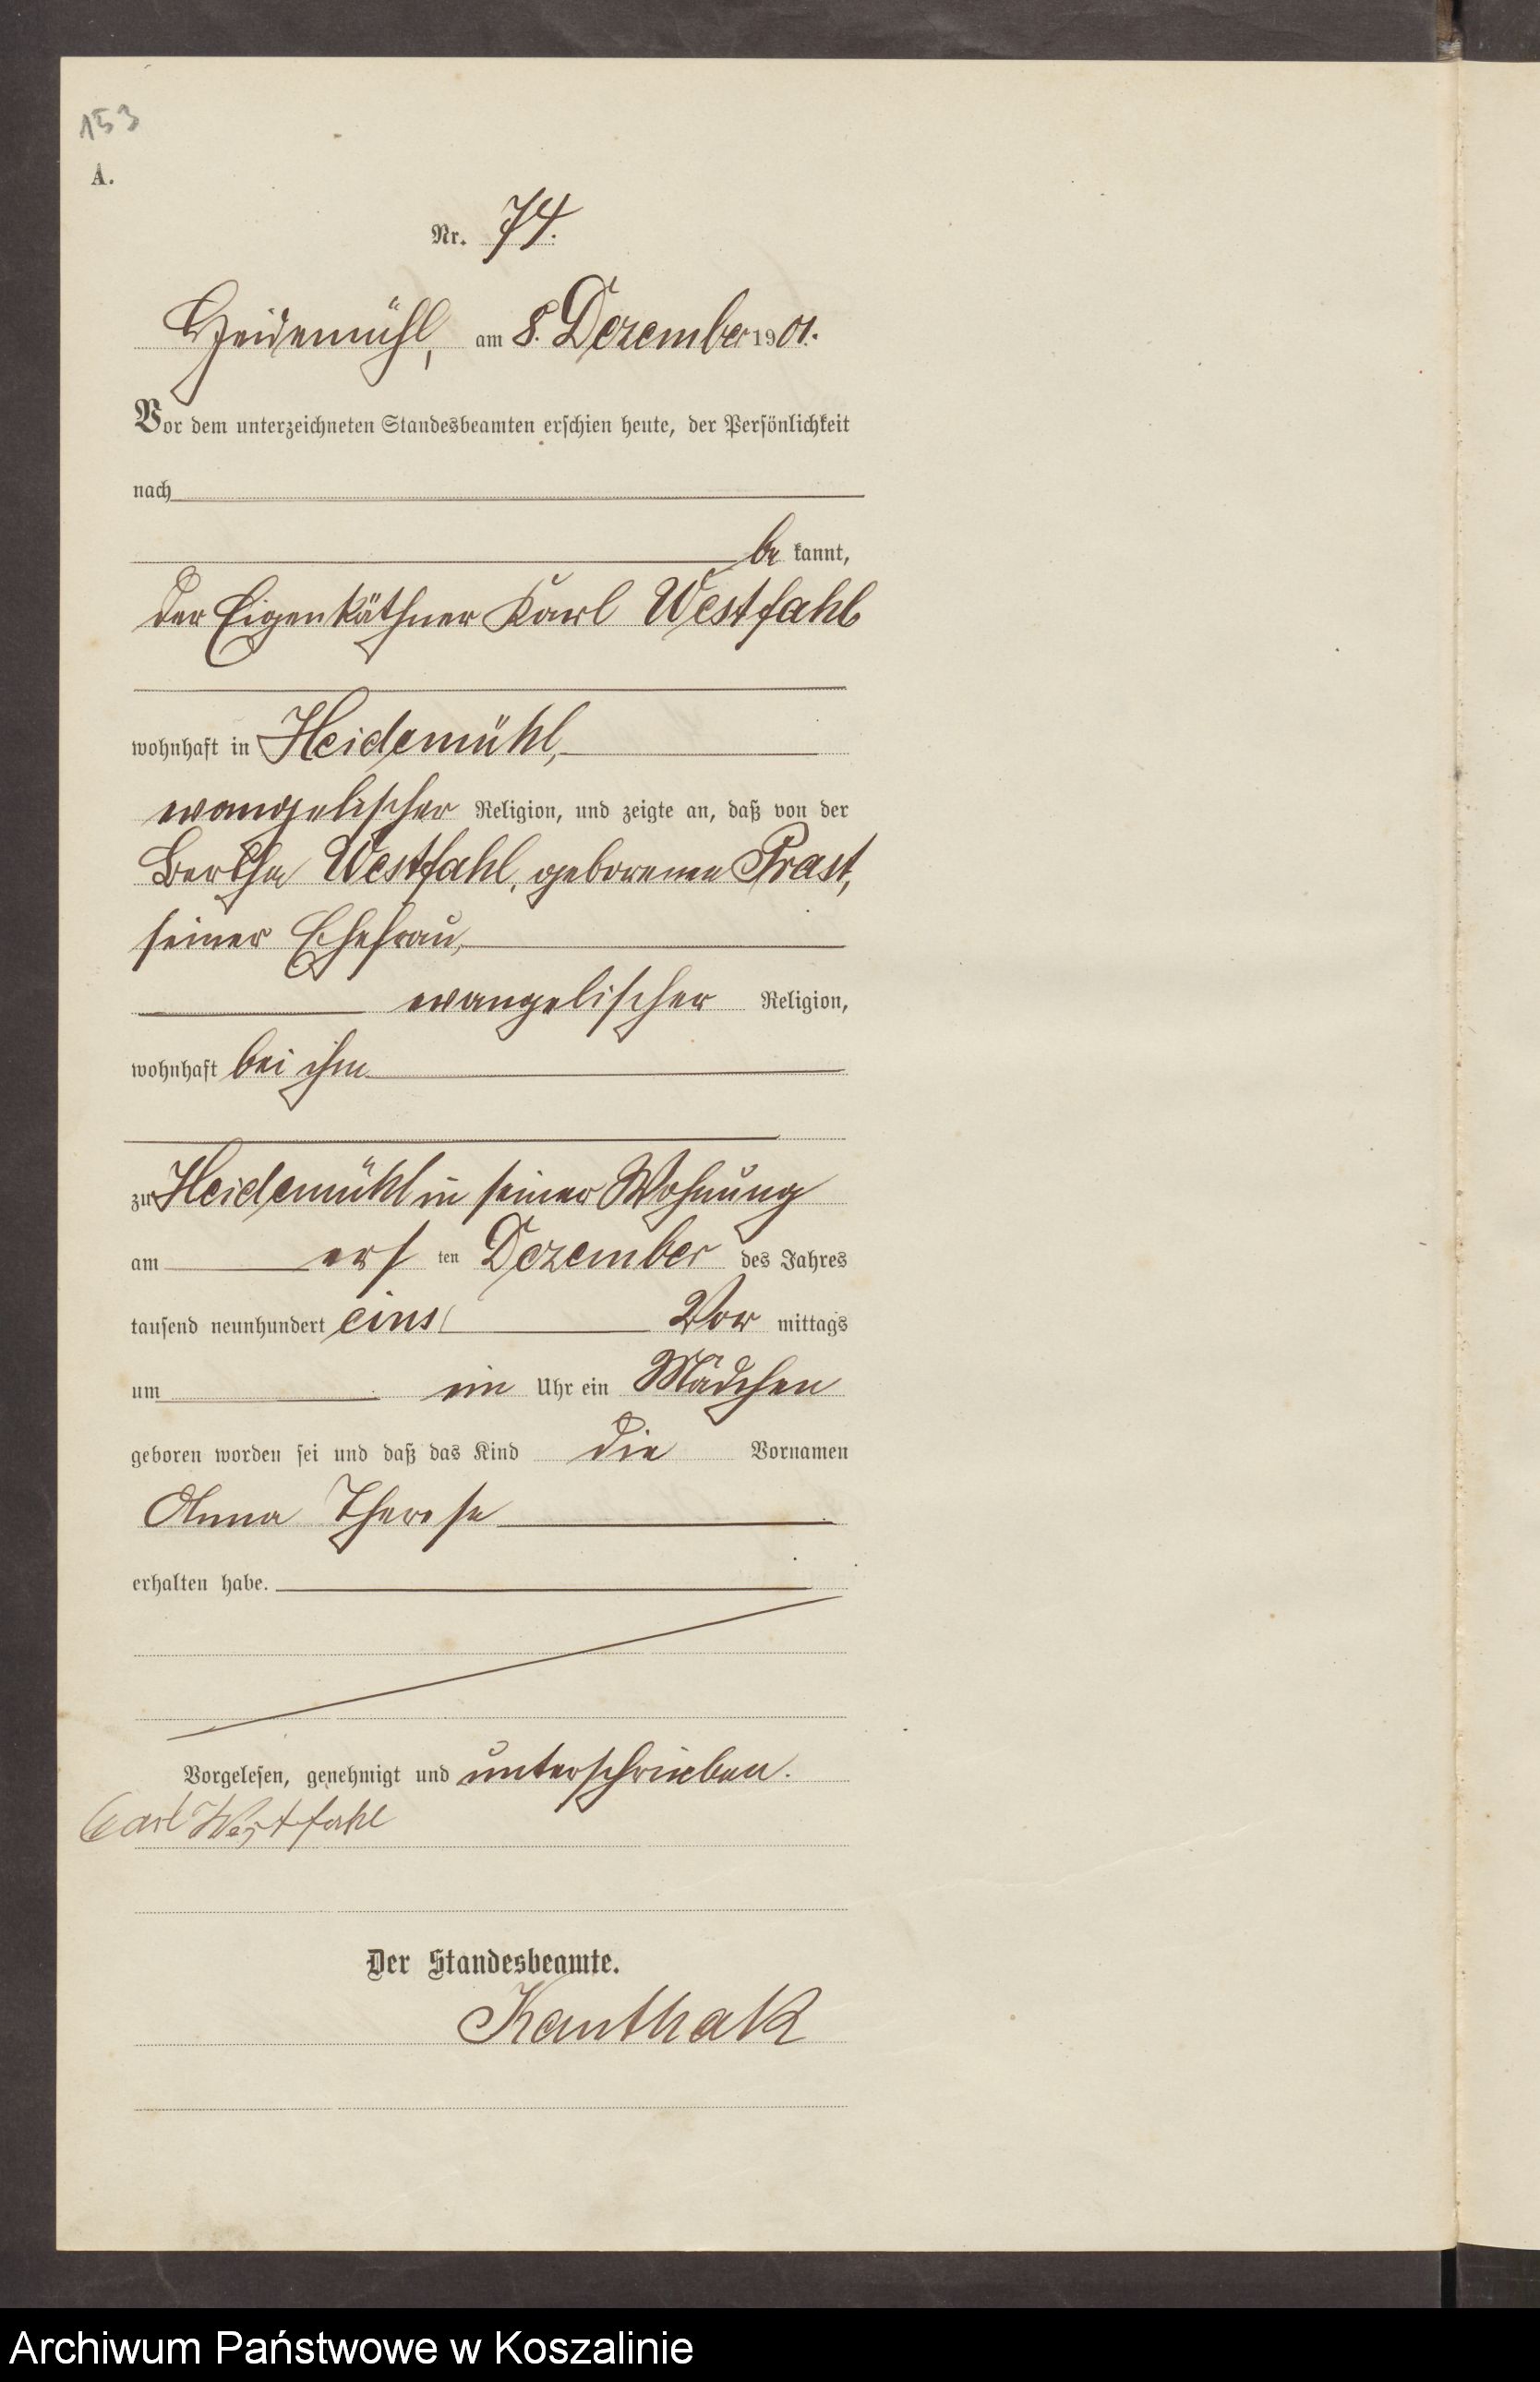 153
A.
Nr. 74.
Heidemühl, am 8. Dezember 1901.
Vor dem unterzeichneten Standesbeamten erschien heute, der Persönlichkeit
nach
be kannt,
der Eigenkäthner Karl Westfahl
wohnhaft in Heidemühl,
evangelischer Religion, und zeigte an, daß von der
Bertha Westfahl, geborenen Prast,
seiner Ehefrau,
evangelischer Religion,
wohnhaft bei ihm
zu Heidemühl in seiner Wohnung
am ers ten Dezember des Jahres
tausend neunhundert eins Vor mittags
um ein Uhr ein Mädchen
geboren worden sei und daß das Kind die Vornamen
Anna Therese
erhalten habe.
Vorgelesen, genehmigt und unterschrieben.
Carl Westfahl
Der Standesbeamte.
Kanthak
Archiwum Państwowe w Koszalinie